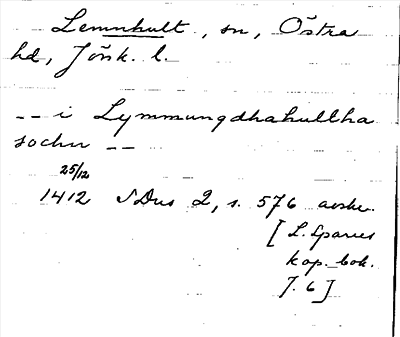 Lemnhult, sn, Östra
hd, Jönk. l.
-- i Lymmungdhahullha
sochn --
25/12
1412 SDns 2, s. 576 avskr.
[L. Sparres
kop. bok.
J. 6]